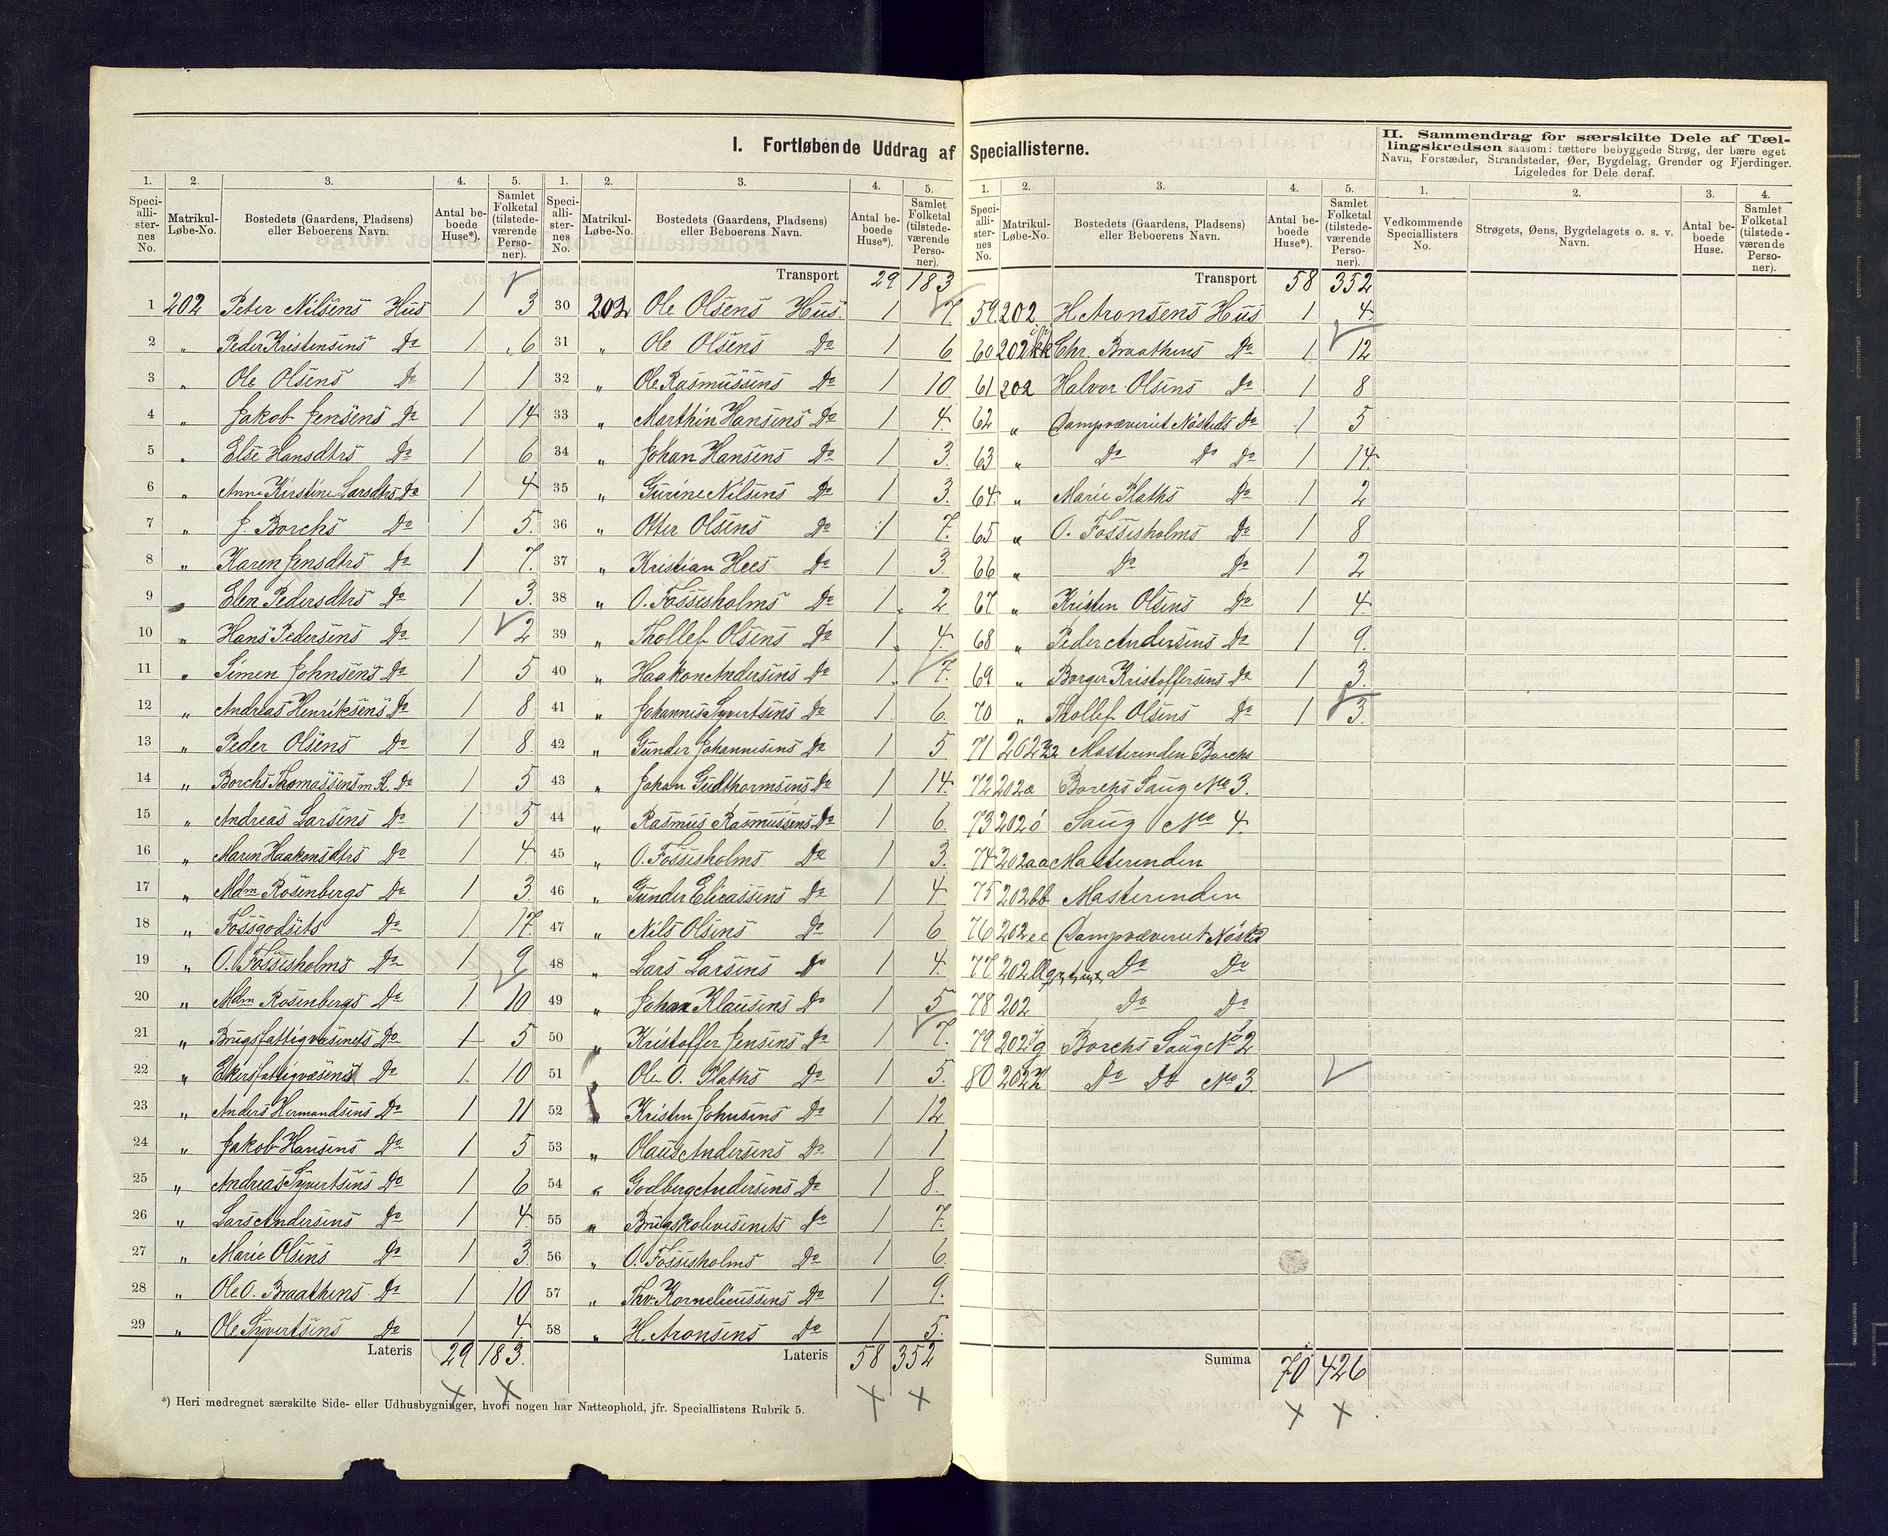 I. Fortløbende Uddrag af Speciallisterne.
II. Sammendrag for særskilte Dele af Tællingskredsen saasom: tættere bebyggede Strøg, der bære eget
Navn, Forstæder, Strandsteder, Øer, Bygdelag, Grender og Fjerdinger.
Ligeledes for Dele deraf.
1. 2. 3. 4. 5. 1. 2. 3. 4. 5. 1. 2. 3. 4. 5. 1. 2. 3. 4.
Speciallisternes No. Matrikul-Løbe-No. Bostedets (Gaardens, Pladsens) eller Beboerens Navn. Antal beboede Huse*). Samlet Folketal (tilstedeværende Personer).
Speciallisternes No. Matrikul-Løbe-No. Bostedets (Gaardens, Pladsens) eller Beboerens Navn. Antal beboede Huse*). Samlet Folketal (tilstedeværende Personer).
Speciallisternes No. Matrikul-Løbe-No. Bostedets (Gaardens, Pladsens) eller Beboerens Navn. Antal beboede Huse*). Samlet Folketal (tilstedeværende Personer).
Vedkommende Speciallisters No. Strøgets, Øens, Bygdelagets o. s. v. Navn. Antal beboede Huse. Samlet Folketal (tilstedeværende Personer).
1 202 Peter Nilsens Hus 1 3
2 „ Peder Kristensens Do 1 6
3 „ Ole Olsens Do 1 1
4 „ Jakob Jensens Do 1 14
5 „ Else Hansdtrs Do 1 6
6 „ Anne Kirstine Larsdtrs Do 1 4
7 „ J. Borchs Do 1 5.
8 „ Karen Jensdtrs Do 1 7.
9 „ Elen Pedersdtrs Do 1 3.
10 „ Hans Pedersens Do 1 2
11 „ Simen Johnsens Do 1 5
12 „ Andreas Henriksens Do 1 8
13 „ Peder Olsens Do 1 8.
14 „ Borchs Thomassens Do 1 5
15 „ Andreas Larsens Do 1 5
16 „ Maren Haakensdtrs Do 1 4
17 „ Mdm Rosenbergs Do 1 3.
18 „ Fossgodsets Do 1 17.
19 „ O. Fossesholms Do 1 9
20 „ Mdm Rosenbergs Do 1 10
21 „ Brugsfattigvæsenets Do 1 5
22 „ Ekersfattigvæsenets Do 1 10
23 „ Anders Hermandsens Do 1 11
24 „ Jakob Hansens Do 1 5
25 „ Andreas Syvertsens Do 1 6
26 „ Lars Andersens Do 1 4.
27 „ Marie Olsens Do 1 3
28 „ Ole O. Braathens Do 1 10
29 „ Ole Syvertsens Do 1 4.
Lateris 29 183.
Transport 29 183
30 202 Ole Olsens Hus. 1 7.
31 „ Ole Olsens Do 1 6
32 „ Ole Rasmussens Do 1 10
33 „ Marthin Hansens Do 1 4.
34 „ Johan Hansens Do 1 3.
35 „ Gurine Nilsens Do 1 3.
36 „ Otter Olsens Do 1 7.
37 „ Kristian Hees Do 1 3.
38 „ O. Fossesholms Do 1 2
39 „ Thollef Olsens Do 1 4.
40 „ Haakon Andersens Do 1 7.
41 „ Johannes Syvertsens Do 1 6.
42 „ Gunder Johannesens Do 1 5
43 „ Johan Gudthormsens Do 1 14.
44 „ Rasmus Rasmussens Do 1 6.
45 „ O. Fossesholms Do 1 3.
46 „ Gunder Elieassens Do 1 4
47 „ Nils Olsens Do 1 6
48 „ Lars Larsens Do 1 4.
49 „ Johan Klausens Do 1 5
50 „ Kristoffer Jensens Do 1 7.
51 „ Ole O. Plaths Do 1 5.
52 „ Kristen Johnsens Do 1 12
53 „ Olaus Andersens Do 1 1
54 „ Godberg Andersens Do 1 8.
55 „ Brugskolevesenets Do 1 7.
56 „ O. Fossesholms Do 1 6.
57 „ Thv. Kornelieussens Do 1 9.
58 „ H. Aronsens Do 1 5.
Lateris 58 352
Transport 58 352
59 202 H. Aronsens Hus 1 4.
60 202 kk Chr. Braathens Do 1 12
61 202 Halvor Olsens Do 1 8
62 „ Dampvæveriet Nøsteds Do 1 5
63 „ Do Do Do 1 14.
64. „ Marie Plaths Do 1 2
65 „ O. Fossesholms Do 1 8
66 „ Do Do 1 2
67 „ Kristen Olsens Do 1 4
68 „ Peder Andersens Do 1 9.
69 „ Borger Kristoffersens Do 1 3.
70 „ Thollef Olsens Do 1 3.
71 202 Masterenden Borchs
72 202æ Borchs Saug No 3.
73 202ö Saug No 4.
74 202aa Masterenden
75 202bb Masterenden
76 202ee Dampvæveriet Nøsted
77 202 Do Do
78 202 Do Do
79 202 g Borchs Saug No 2
80 202 Do Do No 3.
Summa 70 426
*) Heri medregnet særskilte Side- eller Udhusbygninger, hvori nogen har Natteophold, jfr. Speciallistens Rubrik 5.